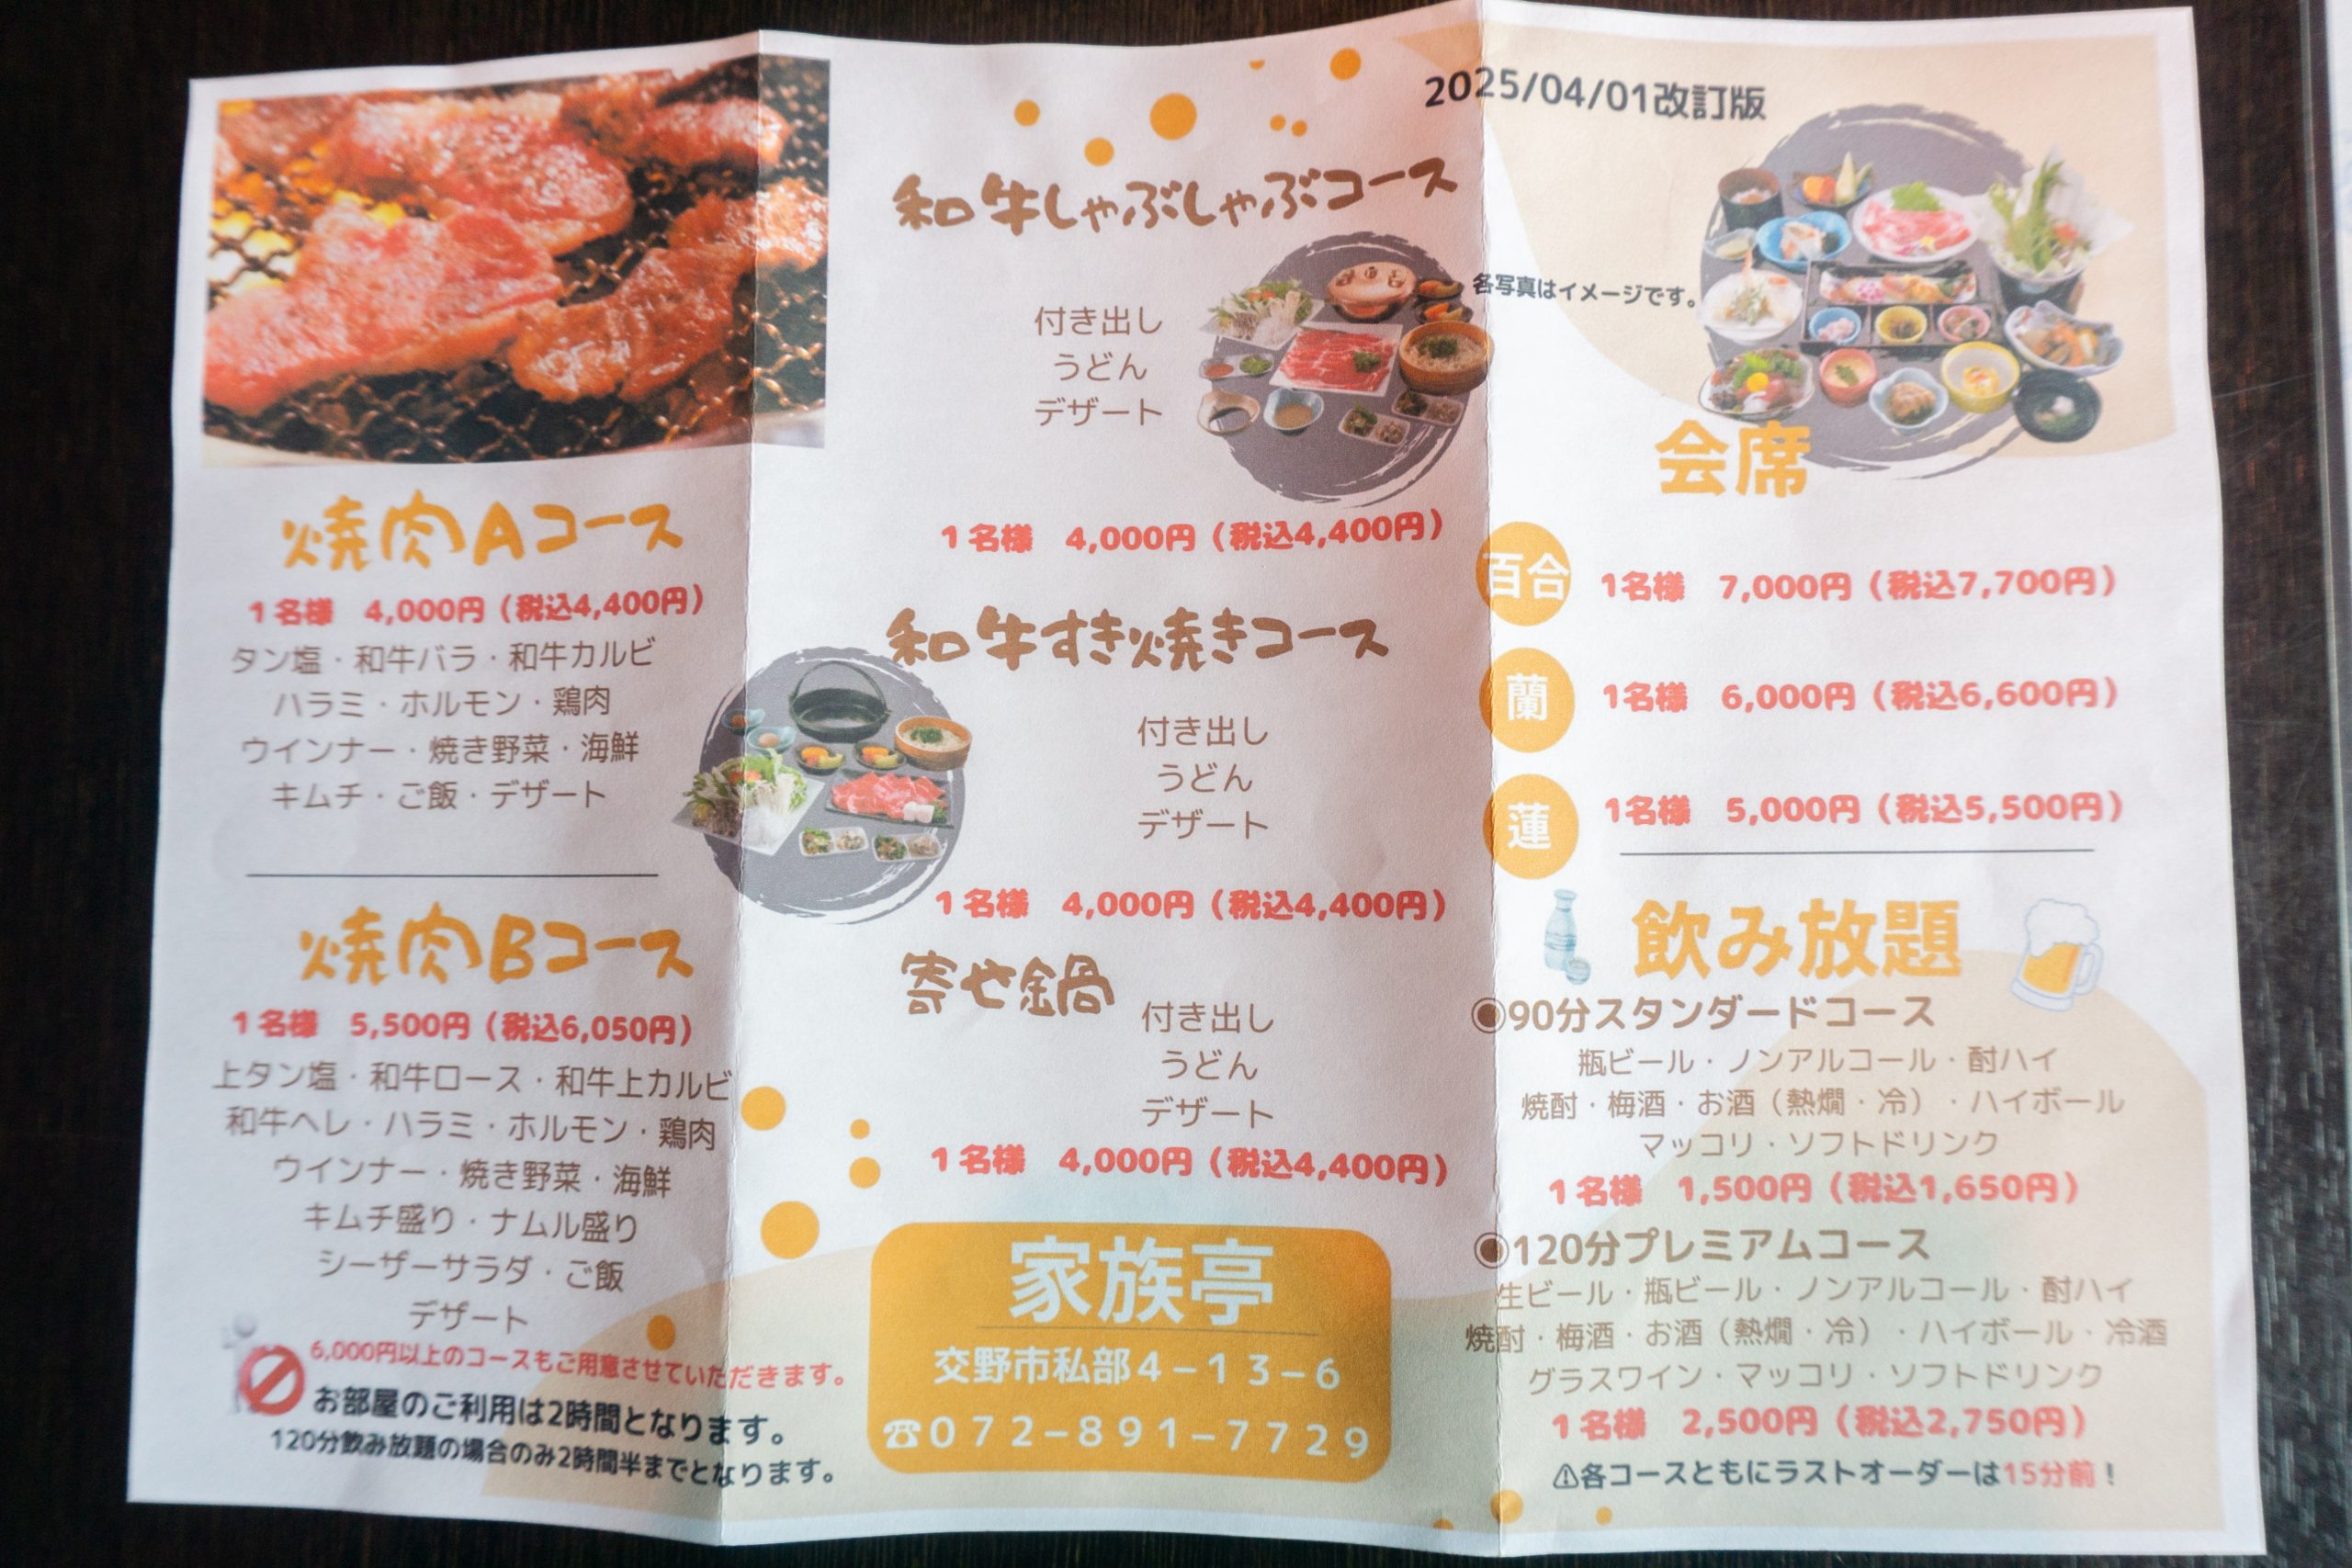 焼肉Aコース
1名様 4,000円（税込4,400円）
タン塩・和牛バラ・和牛カルビ
ハラミ・ホルモン・鶏肉
ウインナー・焼き野菜・海鮮
キムチ・ご飯・デザート
焼肉Bコース
1名様 5,500円（税込6,050円）
上タン塩・和牛ロース・和牛上カルビ
和牛ヘレ・ハラミ・ホルモン・鶏肉
ウインナー・焼き野菜・海鮮
キムチ盛り・ナムル盛り
シーザーサラダ・ご飯
デザート
6,000円以上のコースもご用意させていただきます。
お部屋のご利用は2時間となります。
120分飲み放題の場合のみ2時間半までとなります。
和牛しゃぶしゃぶコース
付き出し
うどん
デザート
1名様 4,000円（税込4,400円）
和牛すき焼きコース
付き出し
うどん
デザート
1名様 4,000円（税込4,400円）
寄せ鍋
付き出し
うどん
デザート
1名様 4,000円（税込4,400円）
家族亭
交野市私部4－13－6
☎072－891－7729
2025/04/01改訂版
各写真はイメージです。
会席
百合 1名様 7,000円（税込7,700円）
蘭 1名様 6,000円（税込6,600円）
蓮 1名様 5,000円（税込5,500円）
飲み放題
◉90分スタンダードコース
瓶ビール・ノンアルコール・酎ハイ
焼酎・梅酒・お酒（熱燗・冷）・ハイボール
マッコリ・ソフトドリンク
1名様 1,500円（税込1,650円）
◉120分プレミアムコース
生ビール・瓶ビール・ノンアルコール・酎ハイ
焼酎・梅酒・お酒（熱燗・冷）・ハイボール・冷酒
グラスワイン・マッコリ・ソフトドリンク
1名様 2,500円（税込2,750円）
⚠各コースともにラストオーダーは15分前！